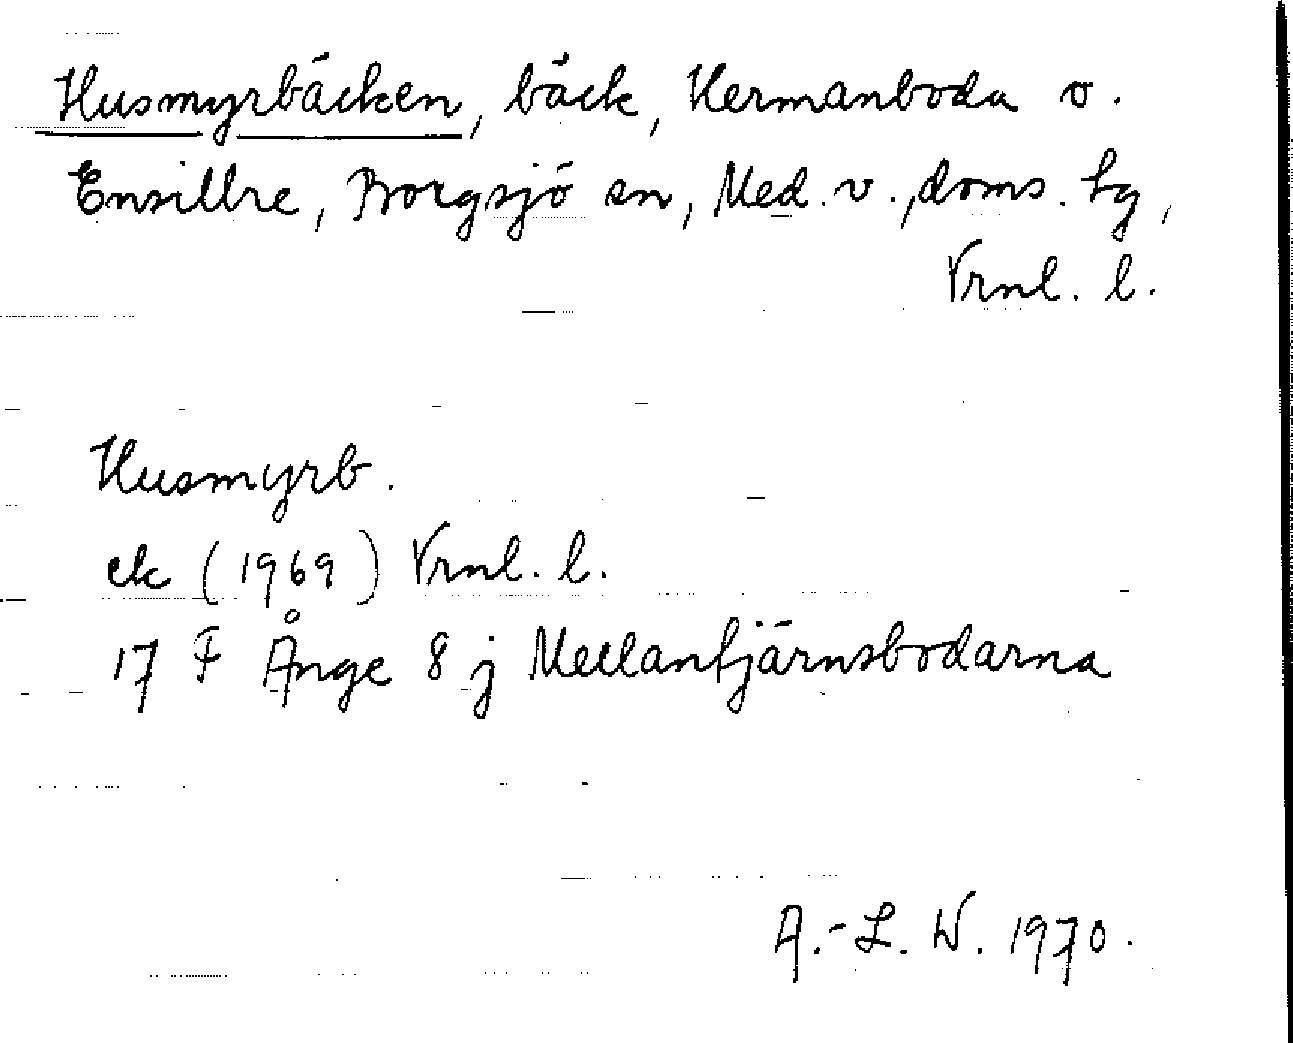 Husmyrbäcken, bäck, Hermanboda o.
Ensillre, Borgsjö sn, Med. v., doms. hg,
Vrnl. l.
Husmyrb.
ek (1969) Vrnl. l.
17 F Ånge 8 j Mellantjärnsbodarna
A.-L. W. 1970.